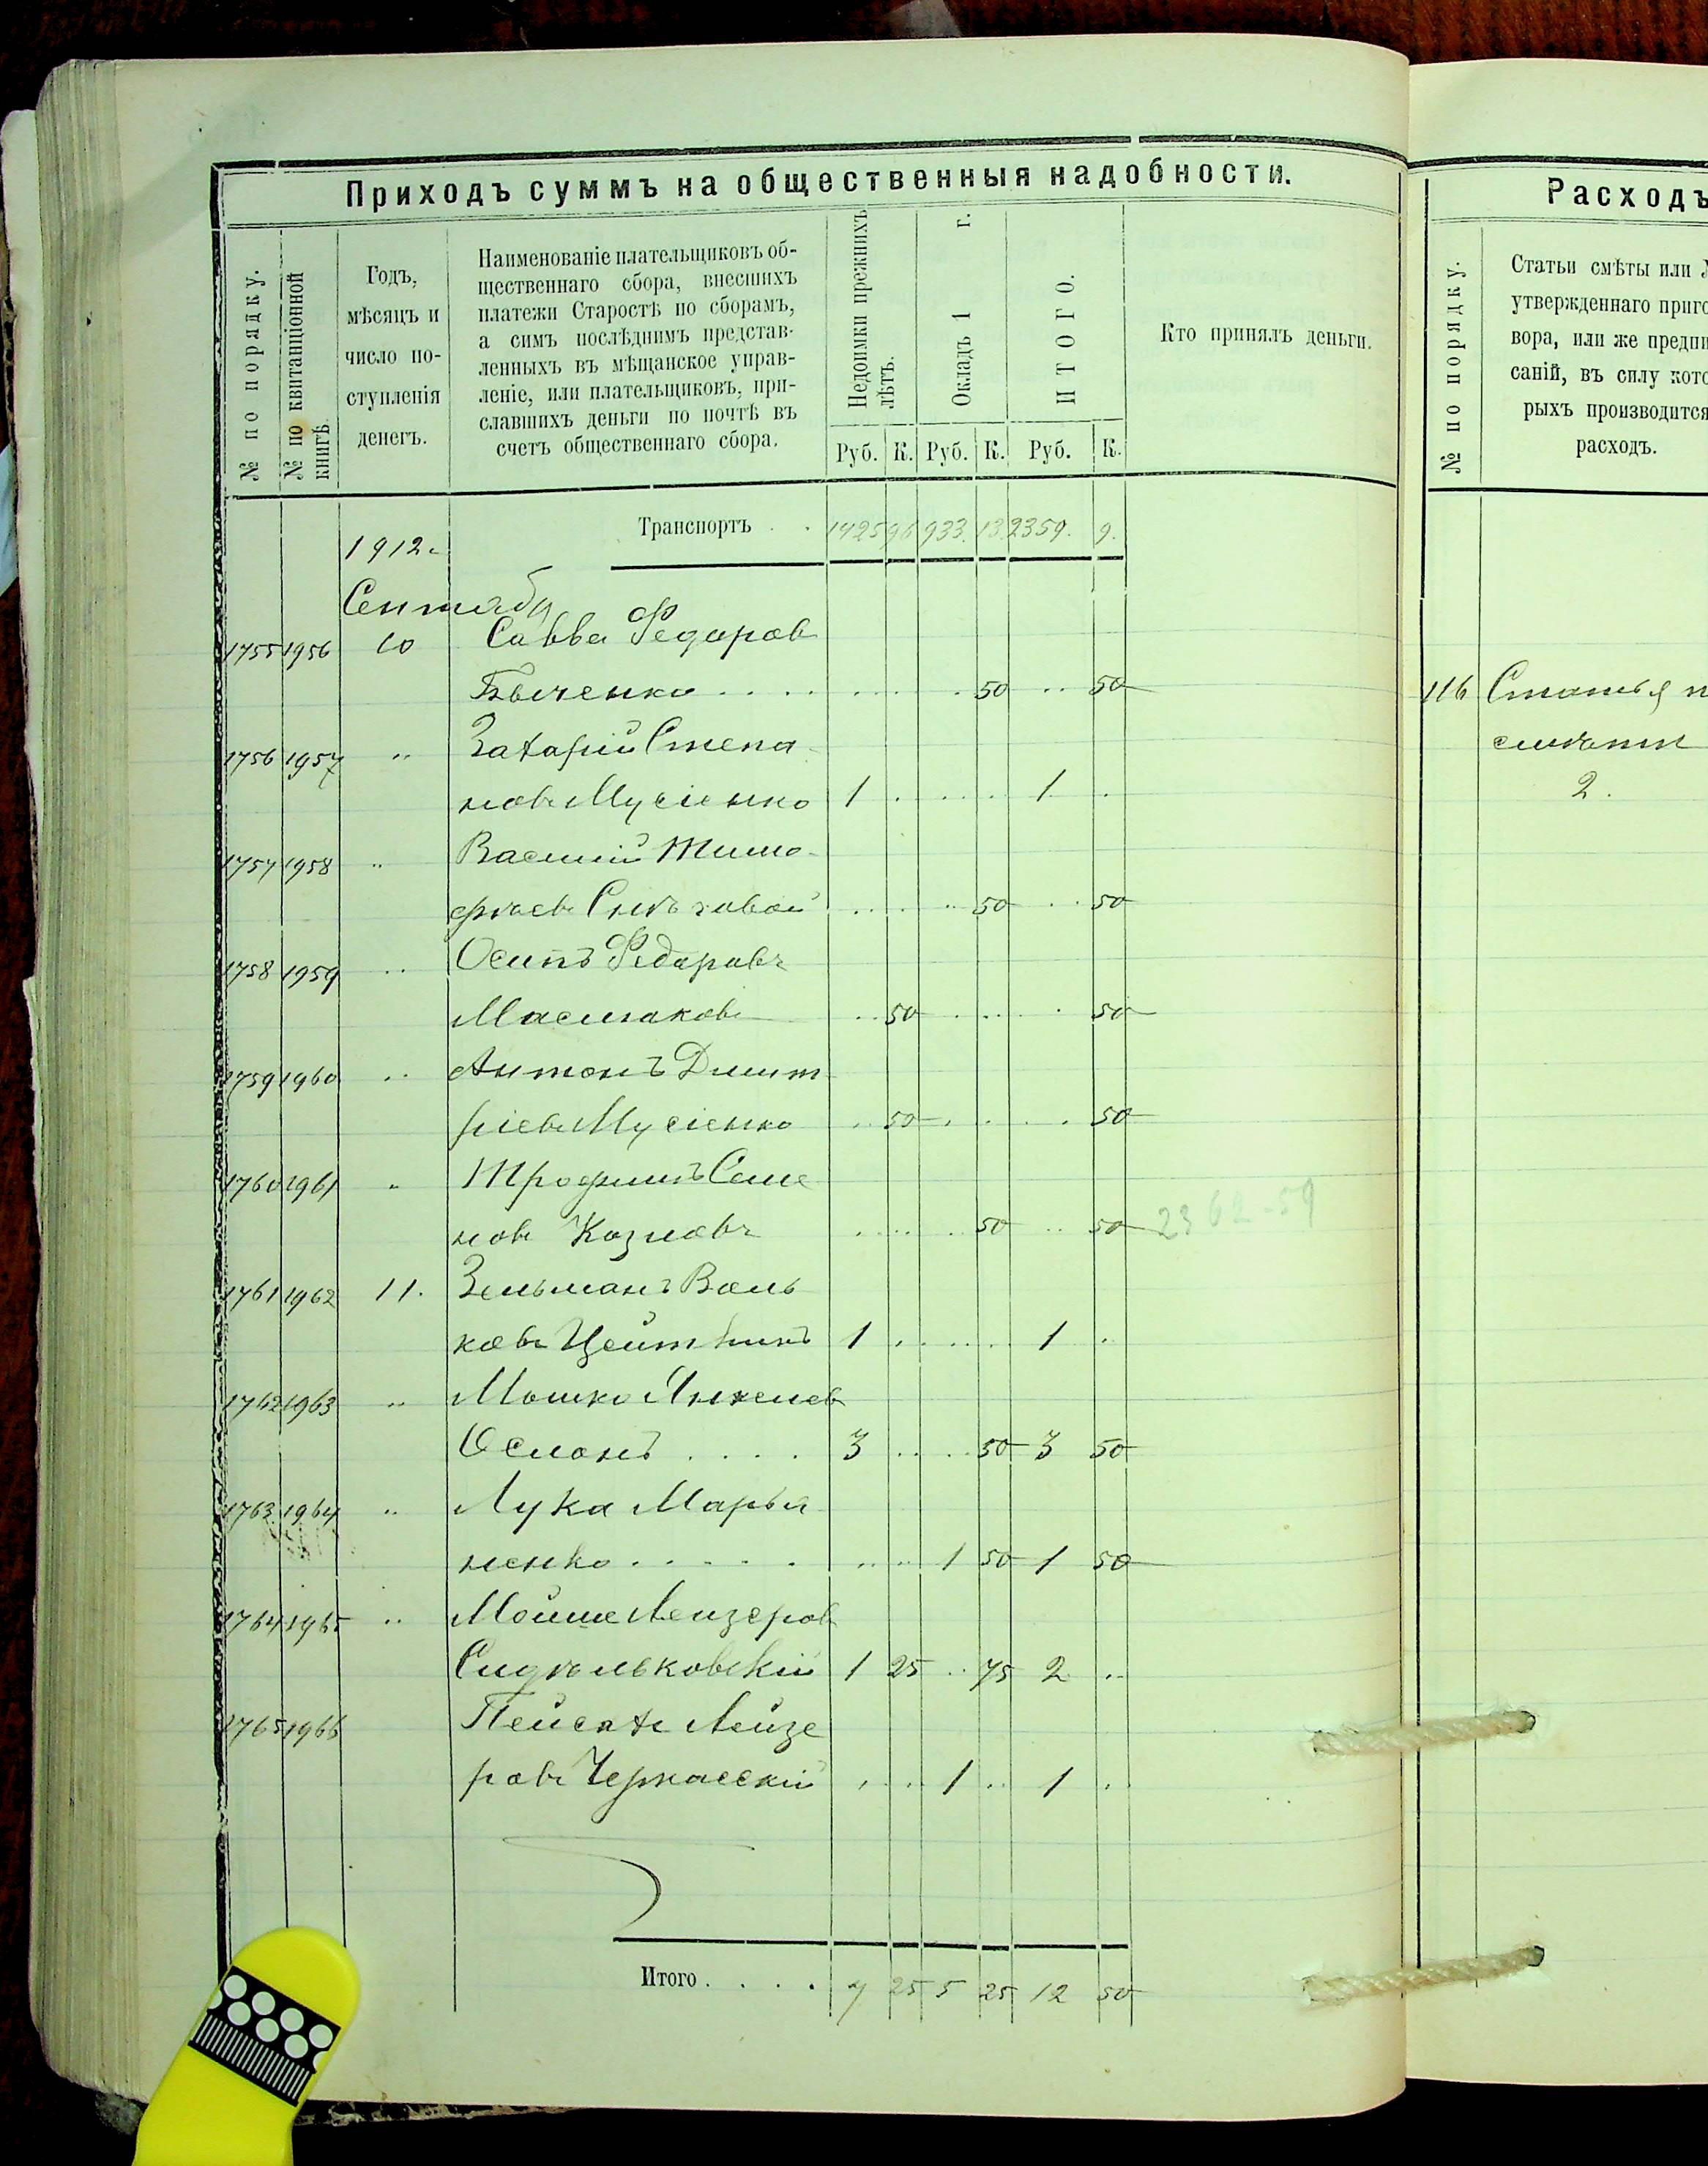 Приходъ суммъ на общественныя надобности.
№ по порядку.
№ по квитанціонной
книгѣ.
Годъ,
мѣсяцъ и
число по-
ступленія
денегъ.
Наименованіе плательщиковъ об-
щественнаго сбора, внесшихъ
платежи Старостѣ по сборамъ,
а симъ послѣднимъ представ-
ленныхъ въ мѣщанское управ-
леніе, или плательщиковъ, при-
славшихъ деньги по почтѣ въ
счетъ общественнаго сбора.
Недоимки прежнихъ
лѣтъ.
Окладъ 1 г.
ИТОГО.
Кто принялъ деньги.
Руб. К. Руб. К. Руб. К.
Транспортъ . . 1425 96 933. 13 2359. 9.
1912.
Сентябр
1755 1956 10 Савва Федоров
Быченко . . . . 50 50
1756 1957 „ Захарій Степа-
новъ Мусіенко 1 1
1757 1958 „ Василій Тимо-
фѣевъ Снѣговой 50 50
1758 1959 „ Осипъ Федоровъ
Маслаковъ 50 50
1759 1960 „ Антонъ Дмит
ріевъ Мусіенко 50 50
1760 1961 „ Трофимъ Семе
новъ Козловъ 50 50 2362-59
1761 1962 11. Зельманъ Воль
ковъ Цейтлинъ 1 1
1762 1963 „ Мошко Янкелев
Осмонъ . . . . 3 50 3 50
1763 1964 „ Лука Марья
ненко . . . . . 1 50 1 50
1764 1965 „ Мойше Лейзеров
Сидельковскій 1 25 75 2 ..
1765 1966 Пейсахъ Лейзе
ровъ Черкасскій 1 1
Итого . . . . 7 25 5 25 12 50
Расходъ
№ по порядку.
Статьи смѣты или
утвержденнаго приго
вора, или же предпи
саній, въ силу кото
рыхъ производится
расходъ.
116 Статья
смѣты
2.